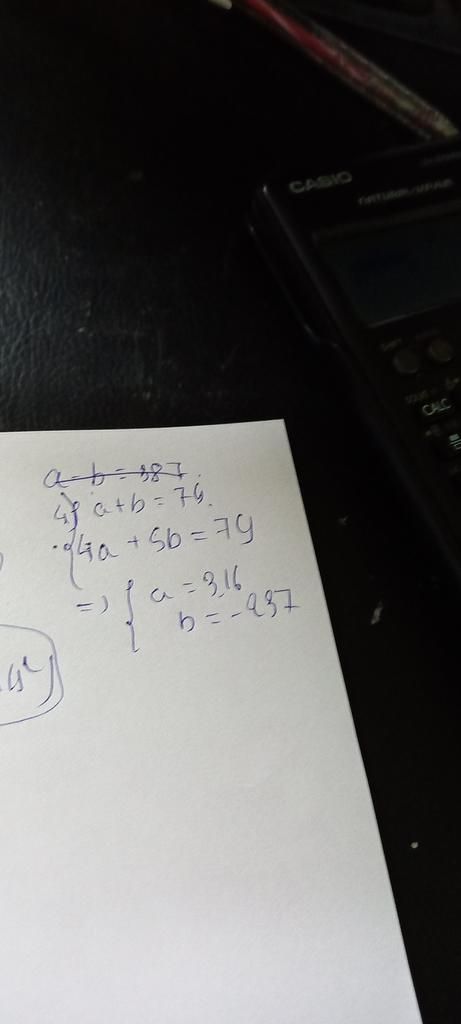 CASIO
CALC
a - b = 387.
a + b = 79.
4a + 5b = 79
=> { a = 316
b = -237